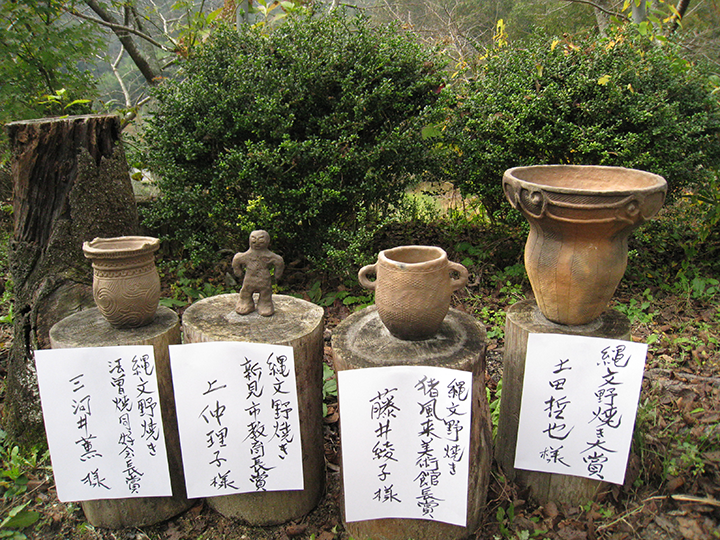 縄文野焼き
法曽焼同好会長賞
三河井薫 様
縄文野焼き
新見市教育長賞
上仲理子様
縄文野焼き
猪風来美術館長賞
藤井綾子様
縄文野焼き大賞
土田哲也様